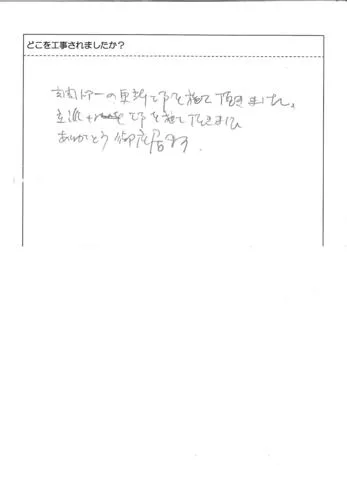 どこを工事されましたか？
玄関ドアーの更新工事を施て頂きました。
立派な 工事を施て頂きまし
ありがとう御座居ます